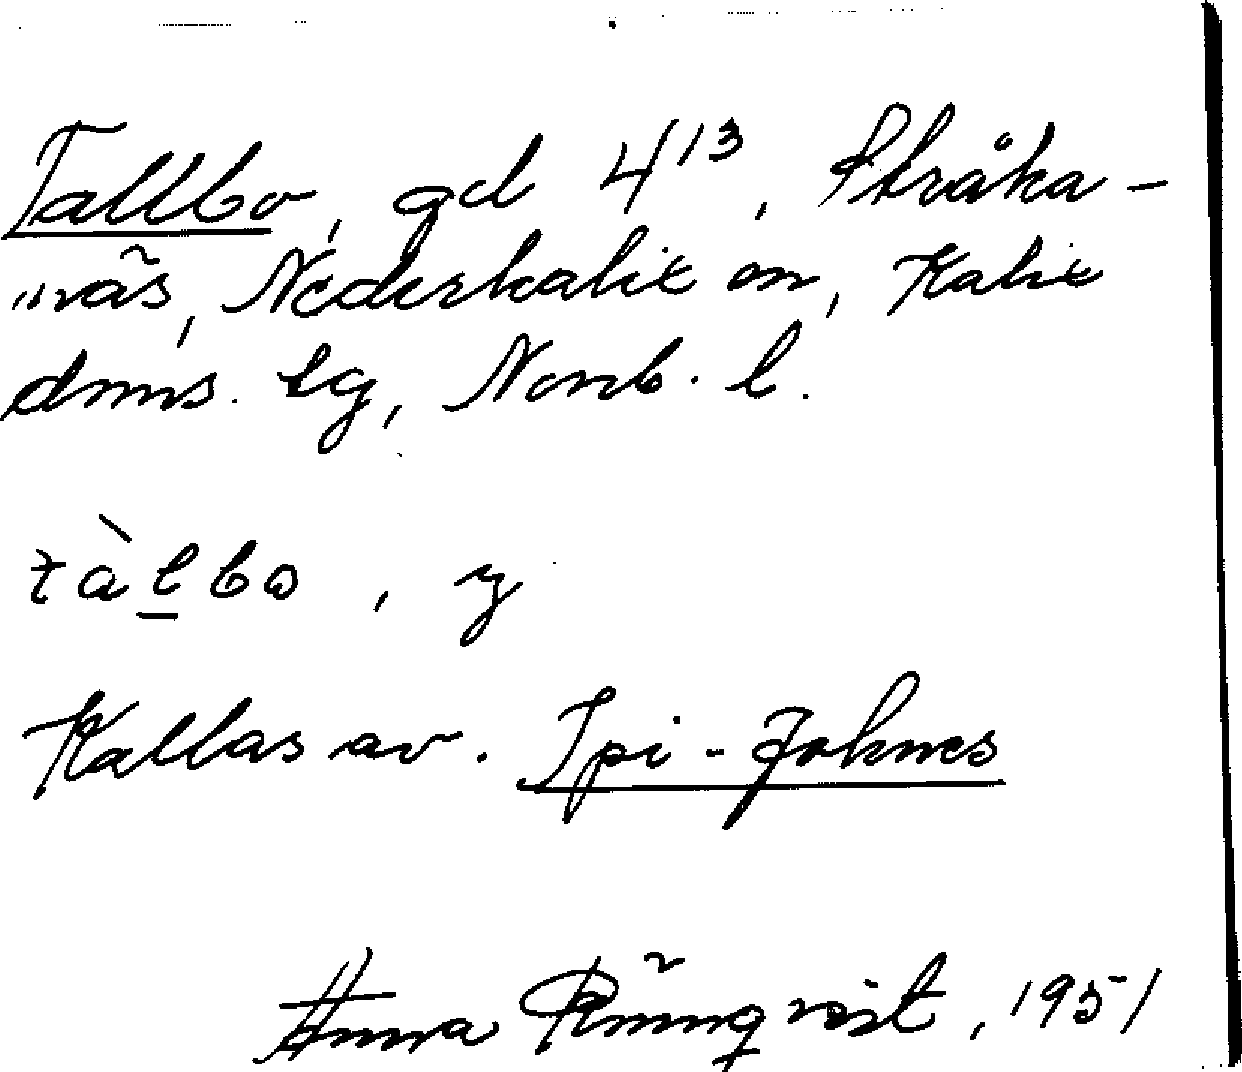 Tallbo, gd 4¹³, Stråka-
näs, Nederkalix sn, Kalix
dms. tg, Norrb. l.
tàlbo, y
Kallas av. Ipi-Johnes
Anna Rönnqvist, 1951